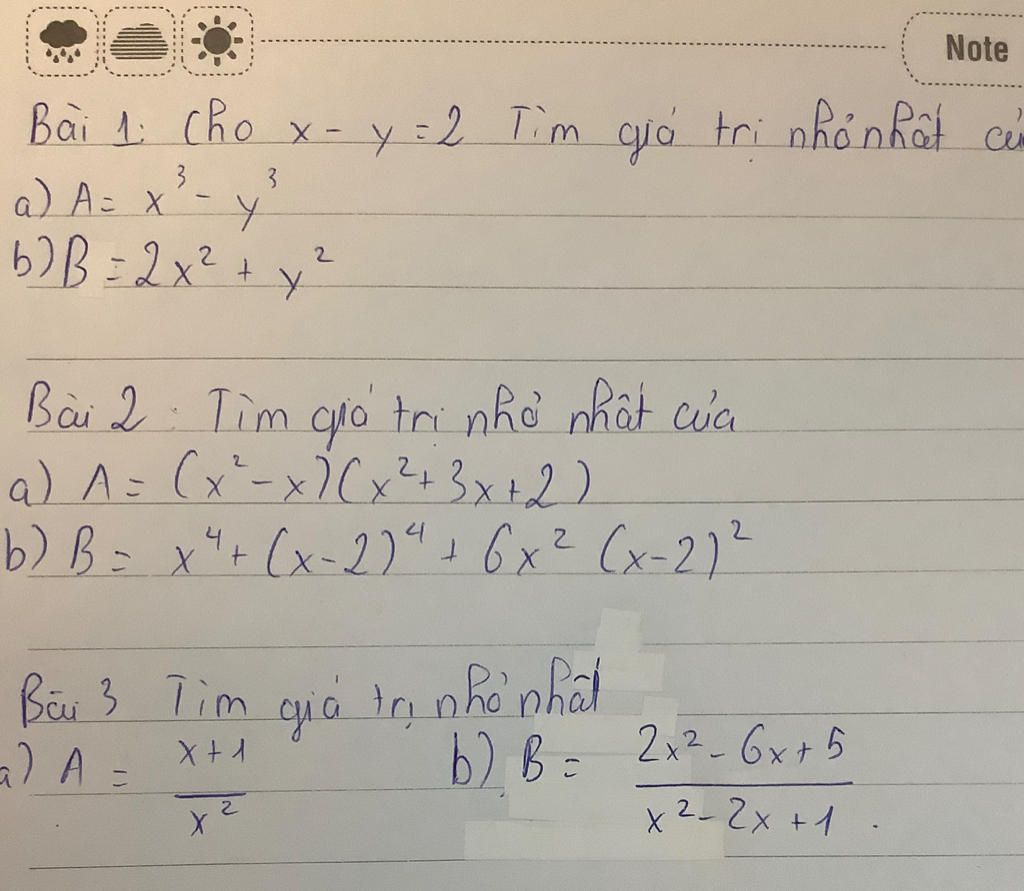 Note
Bài 1: Cho x - y = 2 Tìm giá trị nhỏ nhất củ
a) A = x³ - y³
b) B = 2x² + y²
Bài 2 : Tìm giá trị nhỏ nhất của
a) A = (x² - x)(x² + 3x + 2)
b) B = x⁴ + (x - 2)⁴ + 6x² (x - 2)²
Bài 3 Tìm giá trị nhỏ nhất
a) A = \frac{x+1}{x²} b) B = \frac{2x² - 6x + 5}{x² - 2x + 1} .